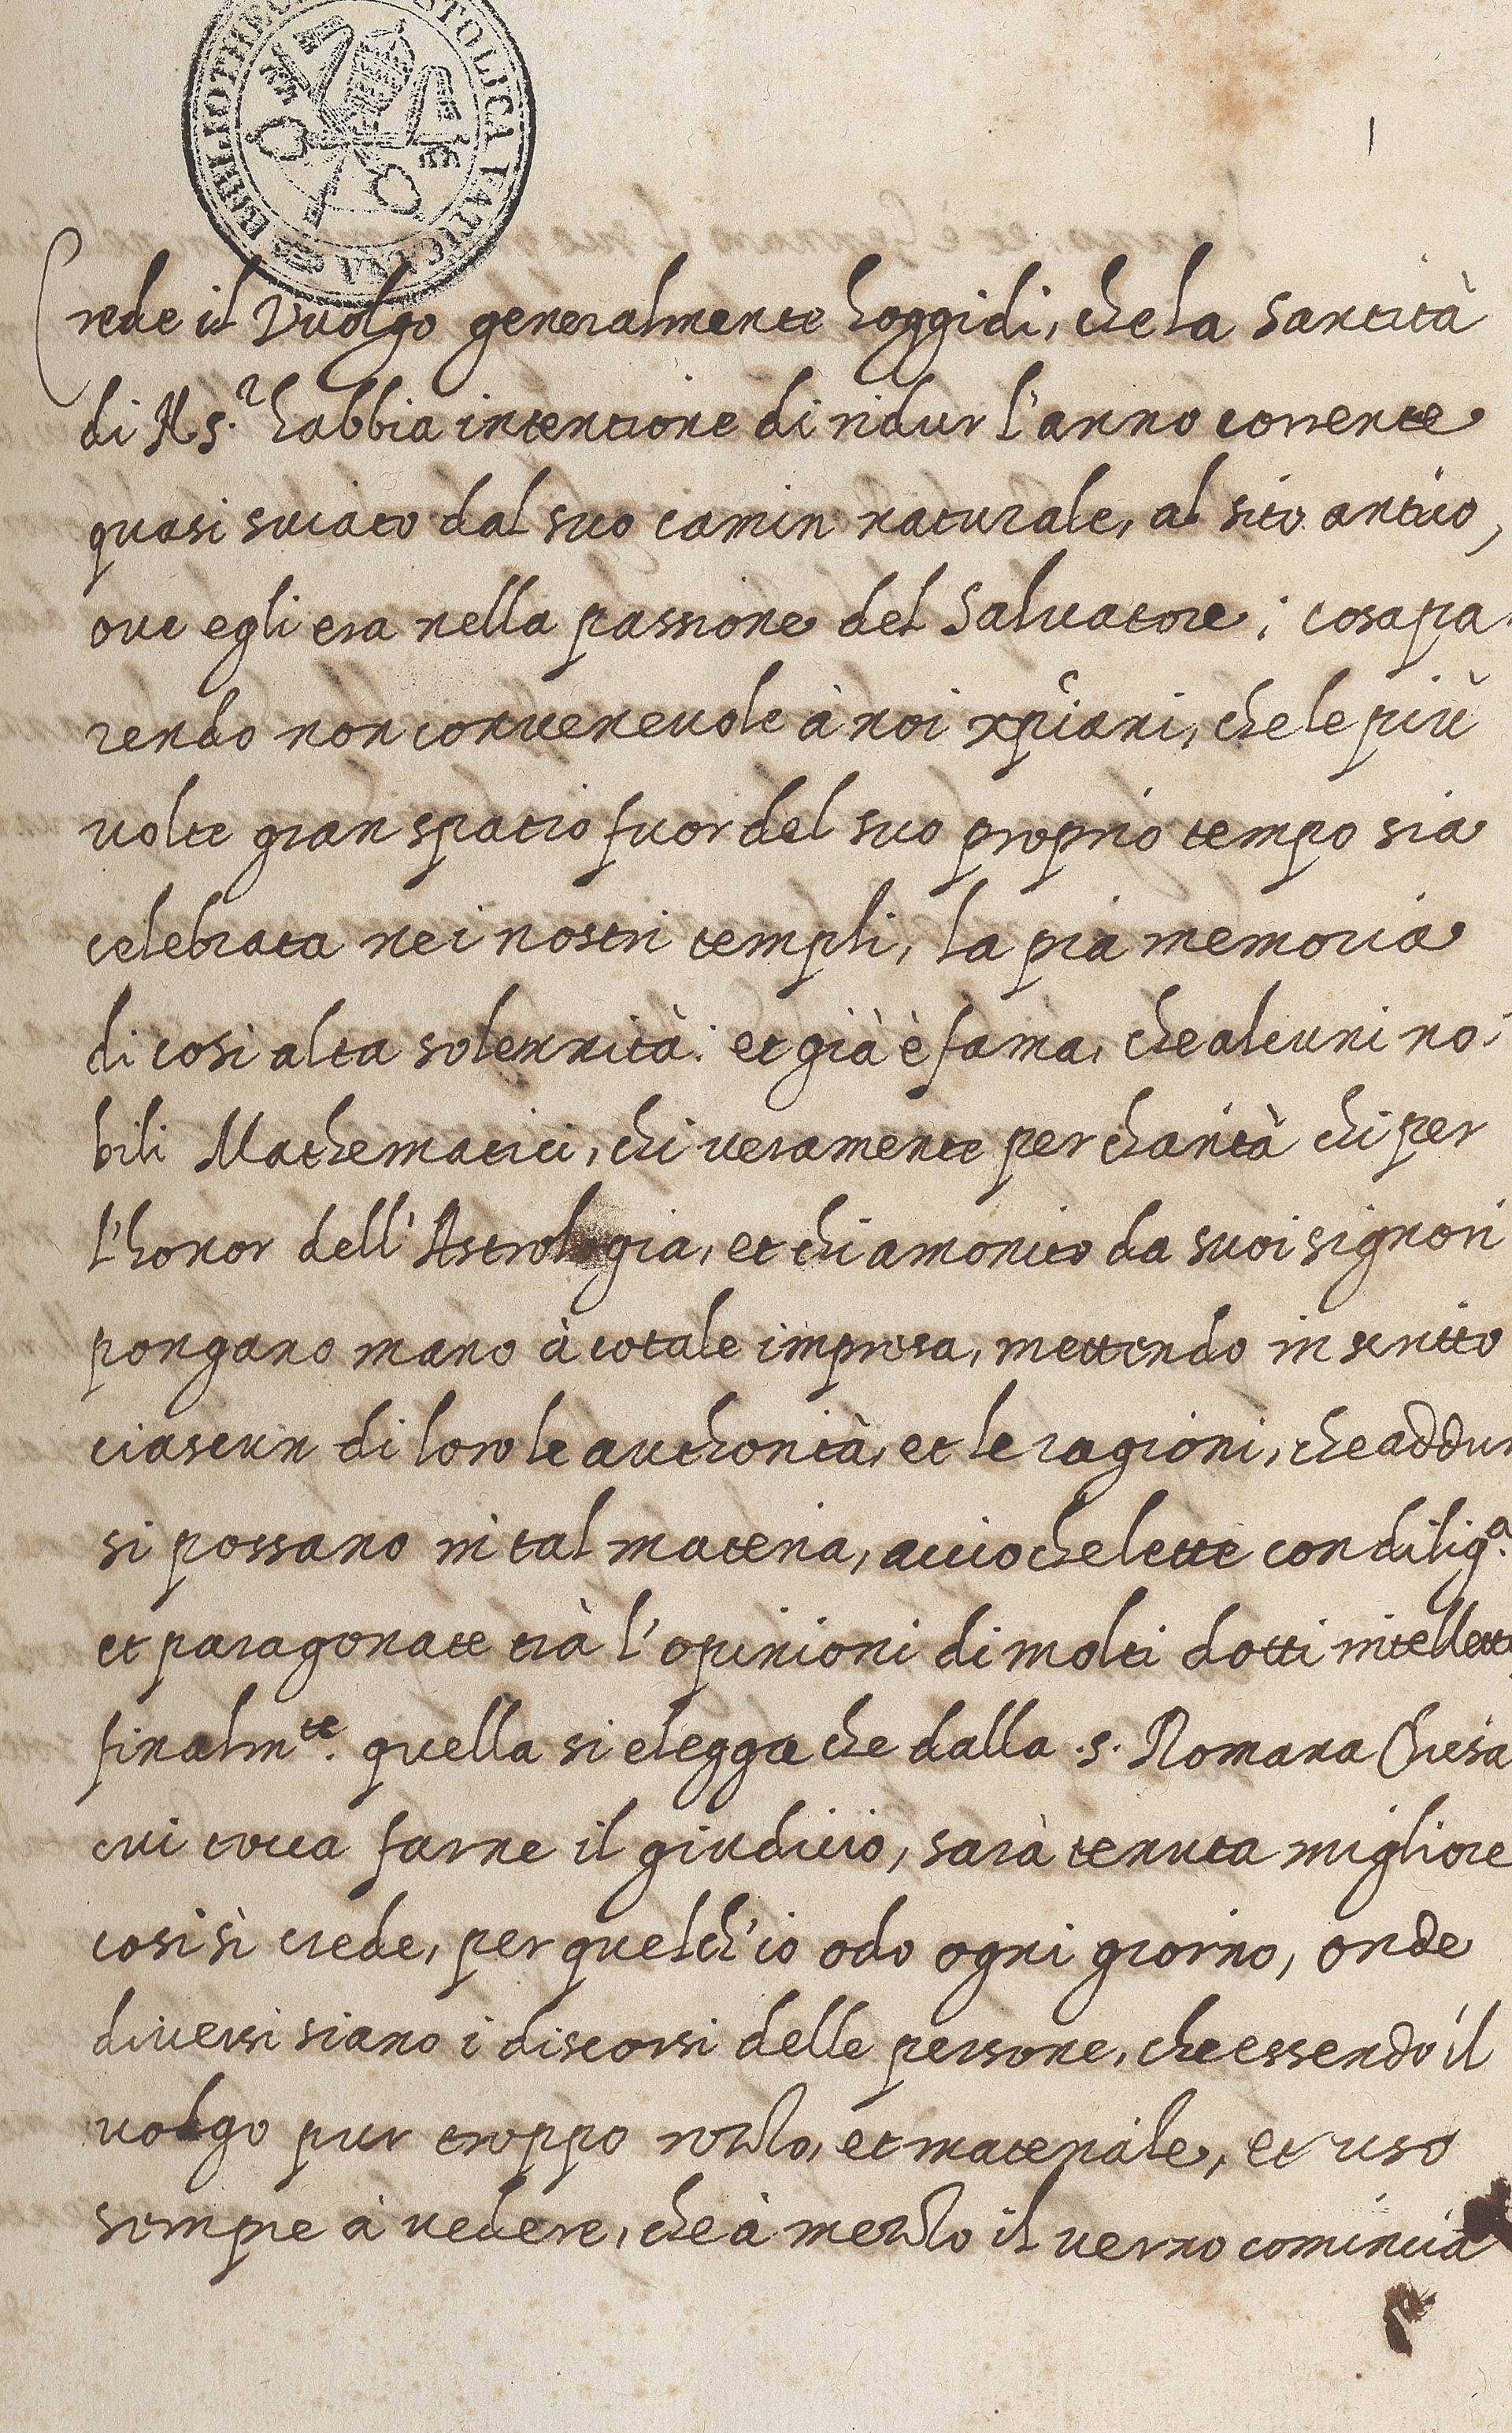 BIBLIOTHECA APOSTOLICA VATICANA
1
Crede il Vuolgo generalmente hoggidi, che la santità
di N. S.r habbia intentione di ridur l'anno corrente
quasi sviato dal suo camin naturale, al sito antico,
ove egli era nella passione del Salvatore; cosa pa-
rendo non convenevole à noi xpiani, che le più
volte gran spatio fuor del suo proprio tempo sia
celebrata nei nostri templi, la pia memoria
di cosi alta solennità: et già è fama, che alcuni no-
bili Mathematici, chi veramente per charità chi per
l'honor dell'Astrologia, et chi amonito da suoi signori
pongano mano à cotale impresa, mettendo in scritto
ciascun di loro le authorità, et le ragioni, che addur
si possano in tal materia, acciochelette con dilig.a
et paragonate trà l'opinioni di molti dotti intelletti
finalm.te quella si elegga che dalla .s. Romana Chiesa
cui tocca farne il giudicio, sarà tenuta migliore
cosi sì crede, per quel ch'io odo ogni giorno, onde
diversi siano i discorsi delle persone, che essendo il
volgo pur troppo rozzo, et materiale, et uso
sempre à vedere, che à mezzo il verno comincia